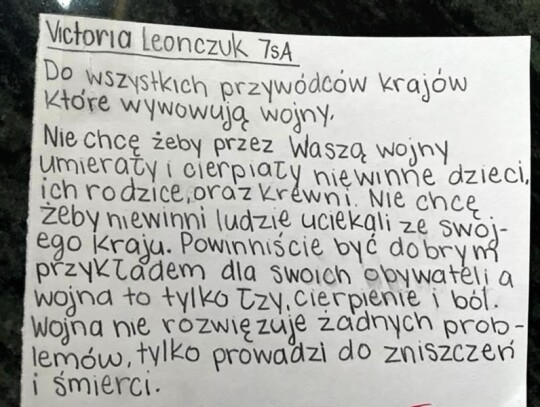 Victoria Leonczuk 7sA
Do wszystkich przywódców krajów
które wywowują wojny.
Nie chcę żeby przez Waszą wojny
umierały i cierpiały niewinne dzieci,
ich rodzice, oraz krewni. Nie chcę
żeby niewinni ludzie uciekali ze swoj-
ego kraju. Powinniście być dobrym
przykładem dla swoich obywateli a
wojna to tylko łzy, cierpienie i ból.
Wojna nie rozwięzuje żadnych prob-
lemów, tylko prowadzi do zniszczeń
i śmierci.